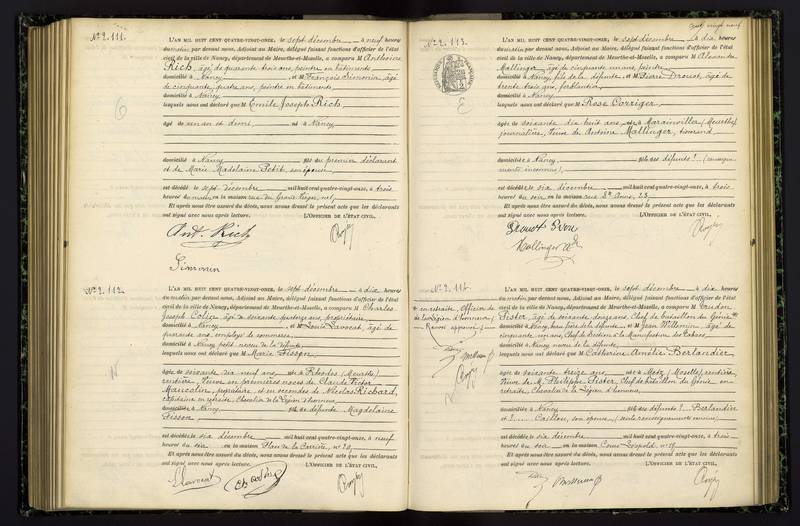 N° 2.111.
L'AN MIL HUIT CENT QUATRE-VINGT-ONZE, le sept décembre à neuf heures
du matin par devant nous, Adjoint au Maire, délégué faisant fonctions d'officier de l'état
civil de la ville de Nancy, département de Meurthe-et-Moselle, a comparu M Anthoine
Rich, âgé de quarante trois ans, peintre en bâtiments
domicilié à Nancy, et M François Simonin, âgé
de cinquante quatre ans, peintre en bâtiments
domicilié à Nancy
lesquels nous ont déclaré que M Emile Joseph Rich,
âgé de un an et demi, né à Nancy
domicilié à Nancy fils du premier déclarant
et de Marie Madelaine Petit, son épouse,
est décédé le sept décembre mil huit cent quatre-vingt-onze, à trois
heures du matin, en la maison rue du Grand Verger, n°1
Et après nous être assuré du décès, nous avons dressé le présent acte que les déclarants
ont signé avec nous après lecture. L'OFFICIER DE L'ÉTAT CIVIL,
Ant. Rich
Simonin
N° 2.112.
L'AN MIL HUIT CENT QUATRE-VINGT-ONZE, le sept décembre à dix heures
du matin par devant nous, Adjoint au Maire, délégué faisant fonctions d'officier de l'état
civil de la ville de Nancy, département de Meurthe-et-Moselle, a comparu M Charles
Joseph âgé de soixante ans, propriétaire
domicilié à Nancy, et M Louis Lavocat, âgé de
quarante ans, employé de commerce
domicilié à Nancy neveu de la défunte
lesquels nous ont déclaré que M Marie Sisson,
âgée de soixante dix neuf ans, née à (Meurthe)
rentière, Veuve en premières noces de Claude Victor
et en secondes de Nicolas Richard,
capitaine en retraite, Chevalier de la Légion d'honneur,
domiciliée à Nancy, fille de défunte Magdelaine
Sisson
est décédée le six décembre mil huit cent quatre-vingt-onze, à neuf
heures du soir en la maison Place de la Carrière, n°
Et après nous être assuré du décès, nous avons dressé le présent acte que les déclarants
ont signé avec nous après lecture. L'OFFICIER DE L'ÉTAT CIVIL,
Lavocat
N° 2.113.
L'AN MIL HUIT CENT QUATRE-VINGT-ONZE, le sept décembre à dix heures
du matin par devant nous, Adjoint au Maire, délégué faisant fonctions d'officier de l'état
civil de la ville de Nancy, département de Meurthe-et-Moselle, a comparu M Alexandre
Mallinger, âgé de cinquante un ans, peintre
domicilié à Nancy, fils de la défunte, et M Pierre Drouot, âgé de
trente trois ans, ferblantier
domicilié à Nancy
lesquels nous ont déclaré que M Rose Corriger,
âgée de soixante dix huit ans, née à Marainviller (Meurthe)
journalière, Veuve de Antoine Mallinger, tisserand
domiciliée à Nancy, fille des défunts! (renseigne-
ments inconnus),
est décédée le six décembre mil huit cent quatre-vingt-onze, à trois
heures du soir, en la maison rue Ste Anne, 23,
Et après nous être assuré du décès, nous avons dressé le présent acte que les déclarants
ont signé avec nous après lecture. L'OFFICIER DE L'ÉTAT CIVIL,
Drouot
Mallinger
N° 2.114.
en retraite, Officier de
la Légion d'honneur,
Renvoi approuvé
L'AN MIL HUIT CENT QUATRE-VINGT-ONZE, le sept décembre à dix heures
du matin par devant nous, Adjoint au Maire, délégué faisant fonctions d'officier de l'état
civil de la ville de Nancy, département de Meurthe-et-Moselle, a comparu M
âgé de soixante douze ans, Chef de bataillon du Génie
domicilié à Nancy, beau frère de la défunte, et M Jean Willemin, âgé de
cinquante ans, Chef de Section à la Manufacture des Tabacs
domicilié à Nancy neveu de la défunte
lesquels nous ont déclaré que M Catherine Amélie Berlandier
âgée de soixante treize ans, née à Metz (Moselle) rentière,
Veuve de M. Philippe Chef de bataillon du Génie en
retraite, Chevalier de la Légion d'honneur,
domiciliée à Nancy, fille des défunts! Berlandier
et ! Caillou, son épouse,
est décédée le six décembre mil huit cent quatre-vingt-onze, à trois
heures du soir en la maison Cours Léopold, n°
Et après nous être assuré du décès, nous avons dressé le présent acte que les déclarants
ont signé avec nous après lecture. L'OFFICIER DE L'ÉTAT CIVIL,